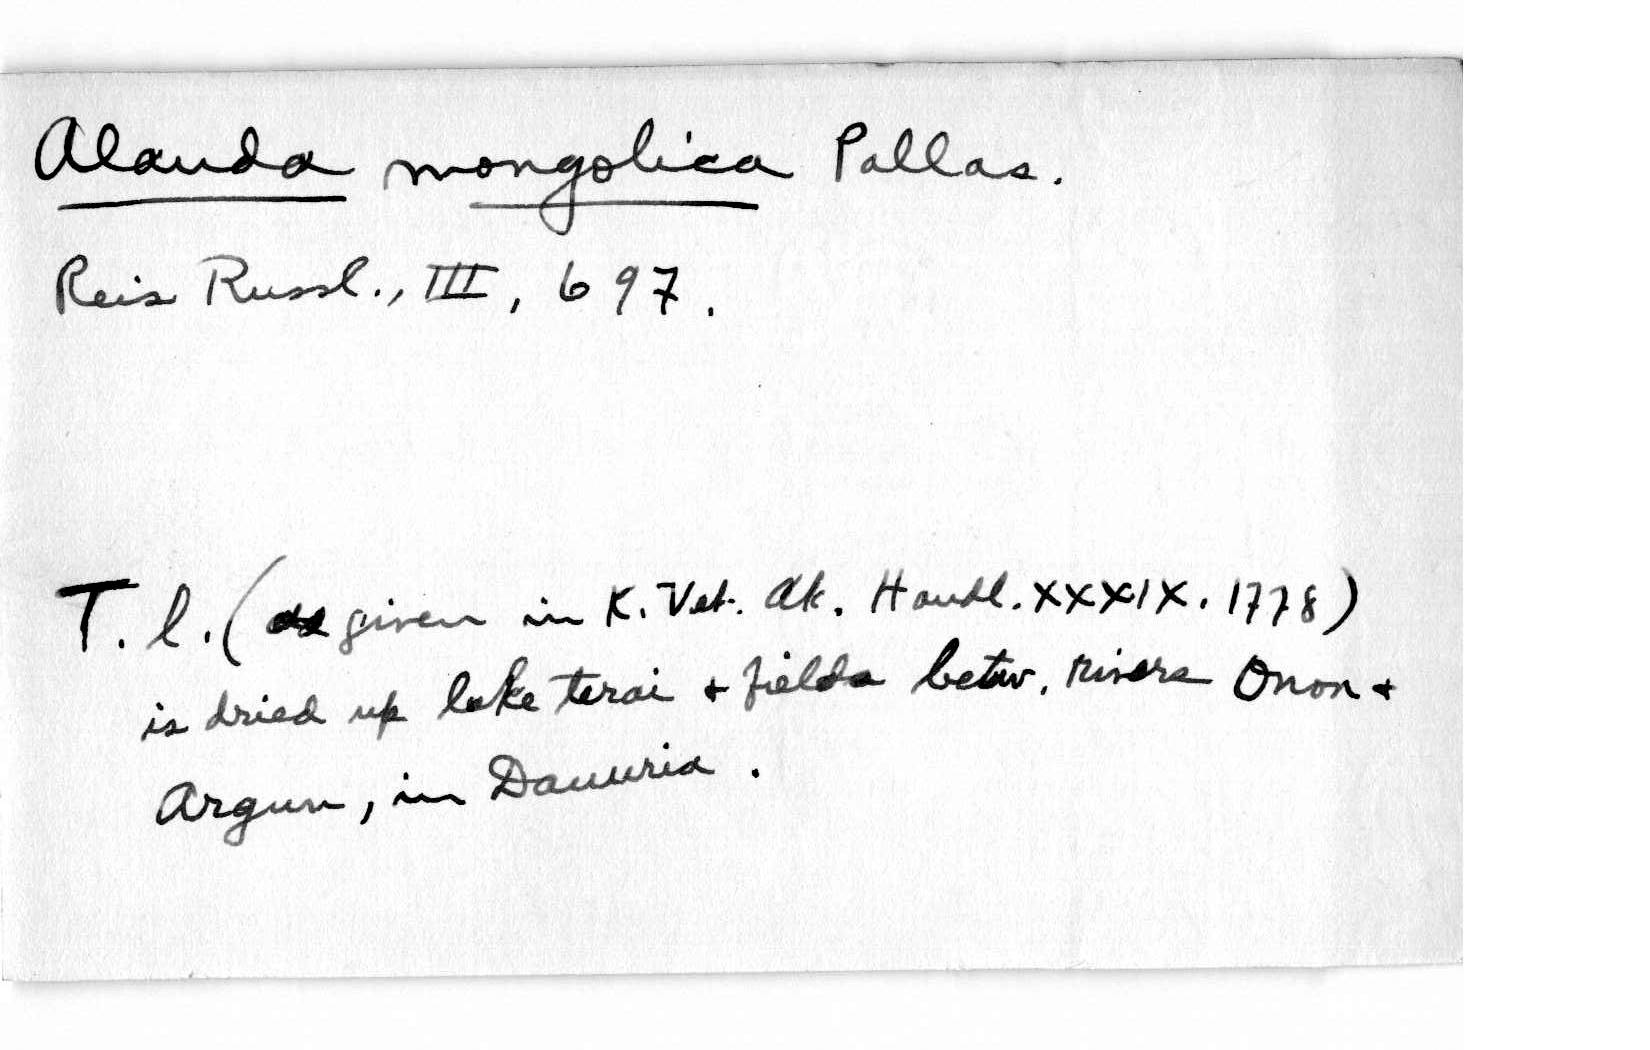 Alauda mongolica Pallas.
Reis Russl., III, 697.
T. l. (as given in K. Vet. Ak. Handl. XXXIX. 1778)
is dried up lake terai + fields betw. rivers Onon +
Argun, in Dauuria.